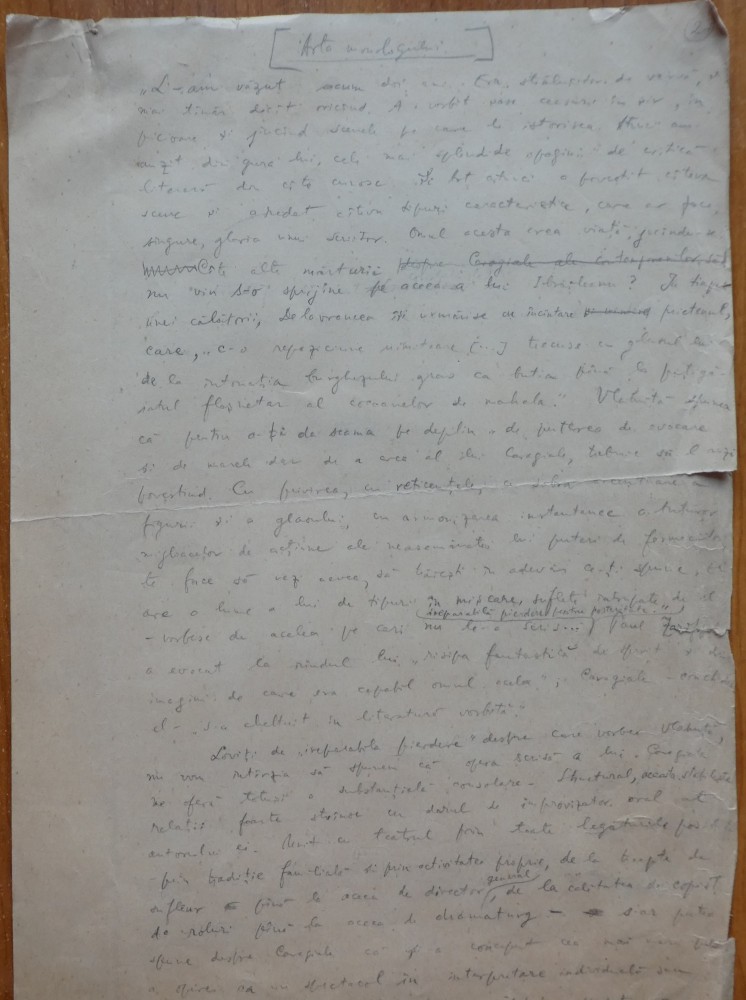 [Arta monologului]
„L-am văzut acum doi ani. Era strălucitor de vervă, și
mai tînăr decît oricînd. A vorbit șase ceasuri în șir, în
picioare și jucînd scenele pe care le istorisea. Atunci am
auzit din gura lui, cele mai splendide pagini de critică
literară din cîte cunosc. Tot atunci a povestit cîteva
scene și a redat cîteva tipuri caracteristice, care ar face,
singure, gloria unui scriitor. Omul acesta crea viață, jucîndu-se
Cîte alte mărturii despre Caragiale ale contemporanilor săi
nu vin să o sprijine pe aceea a lui Ibrăileanu? În timpul
unei călătorii, Delavrancea își urmărise cu încîntare prietenul,
care, „c-o repeziciune uimitoare [...] trecuse cu glasul lui
de la intonația burghezului gras ca butia pînă la
al cucoanelor de mahala." Vlahuță spunea
că pentru a-ți da seama pe deplin „de puterea de evocare
și de marele dar de a crea al lui Caragiale, trebuie să-l auzi
povestind. Cu privirea, cu reticențele, cu
figurii și a glasului, cu armonizarea instantanee a tuturor
mijloacelor de acțiune ale neasemănatei lui puteri de fermecător
te face să vezi aievea, să trăiești în adevăr ce-ți spune.
are o lume a lui de tipuri în mișcare, suflete întrupate de el
ireparabilă pierdere pentru posteritate..."
– vorbesc de acelea pe cari nu le-a scris...] Paul Zarifopol
a evocat la rîndul lui „risipa fantastică de spirit și de
imagini de care era capabil omul acela"; Caragiale – conchide
el – „s-a cheltuit în literatură vorbită."
Loviți de „ireparabila pierdere" despre care vorbea Vlahuță,
nu vom întîrzia să spunem că opera scrisă a lui Caragiale
ne oferă totuși o substanțială consolare. Structural, aceasta
relații foarte strînse cu darul de improvizator oral al
autorului ei. Venit cu teatrul prin toate legăturile posibile
– prin tradiție familială și prin activitatea proprie, de la treapta de
sufleur pînă la aceea de director general, de la calitatea de copist
de roluri pînă la aceea de dramaturg – s-ar putea
spune despre Caragiale că și-a conceput cea mai mare parte
a operei ca un spectacol în interpretare individuală sau